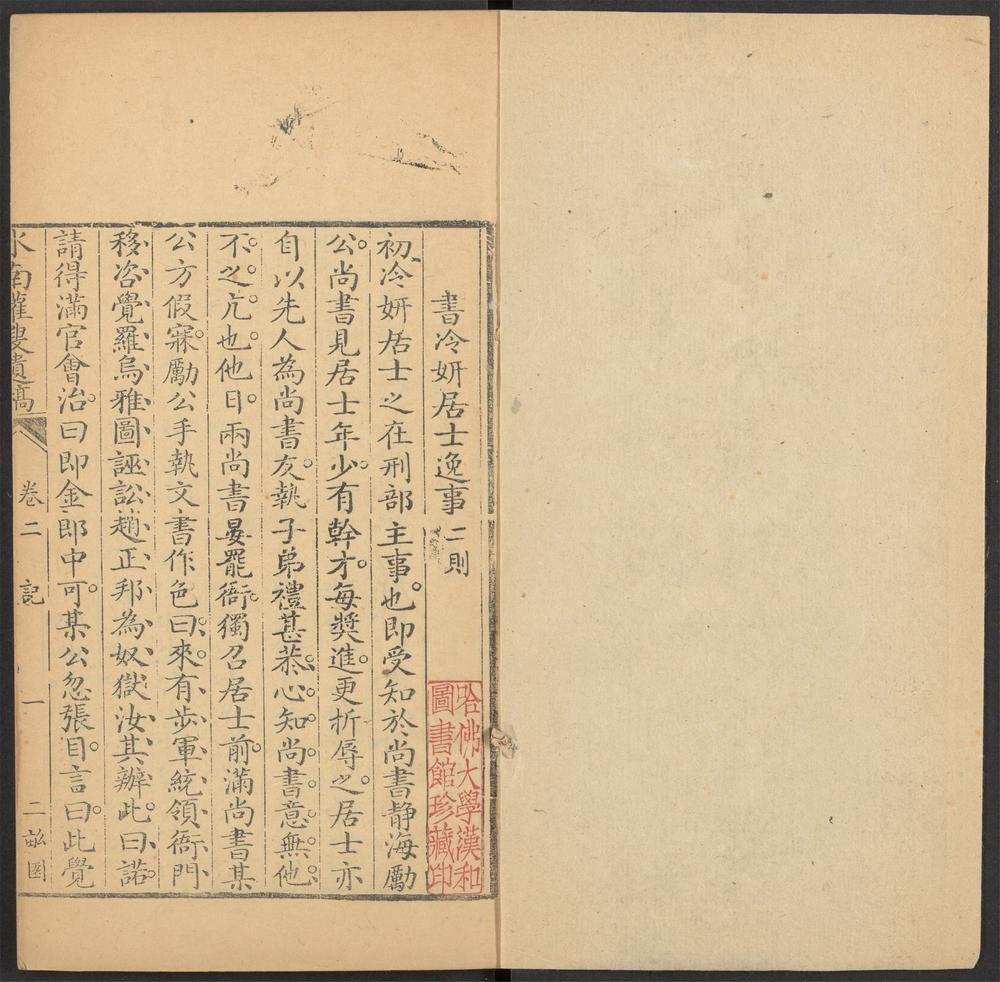 書冷妍居士逸事二則
哈佛大學漢和
圖書館珍藏印
初冷妍居士之在刑部主事也即受知於尚書静海勵
公尚書見居士年少有幹才每獎進更折辱之居士亦
自以先人為尚書友執子弟禮甚恭心知尚書意無他
不之亢也他日兩尚書晏罷衙獨召居士前滿尚書某
公方假寐勵公手執文書作色曰來有步軍統領衙門
移咨覺羅烏雅圖誣訟趙正邦為奴獄汝其辦此曰諾
請得滿官會治曰即金郎中可某公忽張目言曰此覺
水南灌叟遺稿 卷二 記 一 二畝園